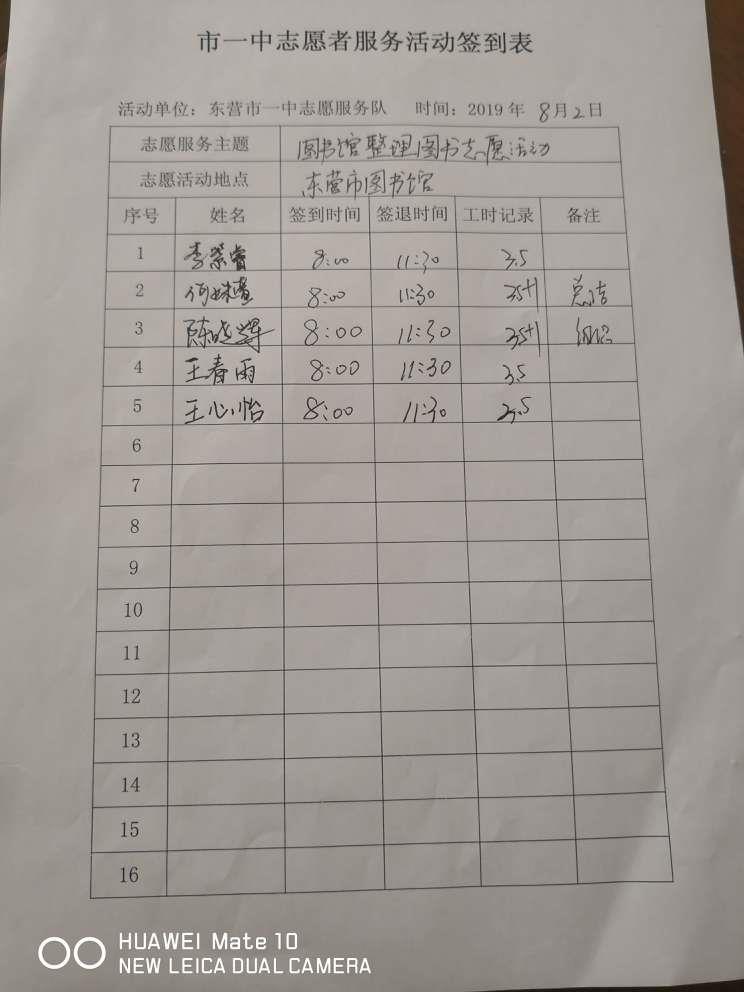 市一中志愿者服务活动签到表
活动单位：东营市一中志愿服务队 时间：2019年8月2日
志愿服务主题 图书馆整理图书志愿活动
志愿活动地点 东营市图书馆
序号 姓名 签到时间 签退时间 工时记录 备注
1 李荣睿 8:00 11:30 3.5
2 何 8:00 11:30 3.5+1 总结
3 陈晓辉 8:00 11:30 3.5+1 组织
4 王春雨 8:00 11:30 3.5
5 王心怡 8:00 11:30 3.5
6
7
8
9
10
11
12
13
14
15
16
HUAWEI Mate 10
NEW LEICA DUAL CAMERA